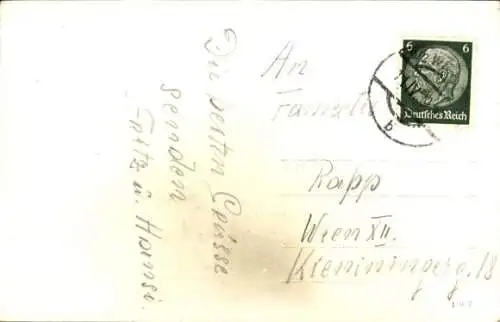 Die besten Grüsse
senden
Fritz u. Hansi.
An
Familie
Rapp
Wien XII.
Kieningerg. 18
6 6
Deutsches Reich
b